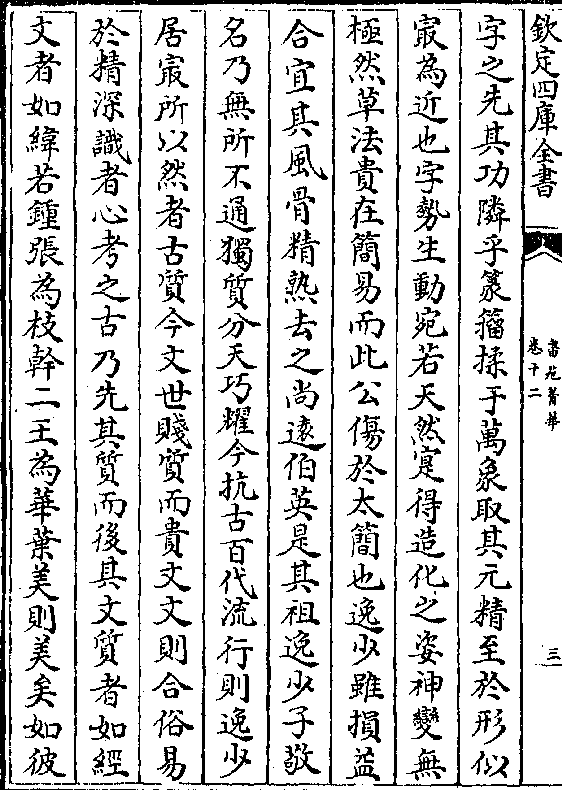 欽定四庫全書
書苑菁華
卷十二
三
字之先其功隣乎篆籀揉于萬象取其元精至於形似
㝡為近也字勢生動宛若天然寔得造化之姿神變無
極然草法貴在簡易而此公傷於太簡也逸少雖損益
合宜其風骨精熟去之尚遠伯英是其祖逸少子敬
名乃無所不通獨質分天巧耀今抗古百代流行則逸少
居㝡所以然者古質今文世賤質而貴文文則合俗易
於精深識者必考之古乃先其質而後其文質者如經
文者如緯若鍾張為枝幹二王為華葉美則美矣如彼